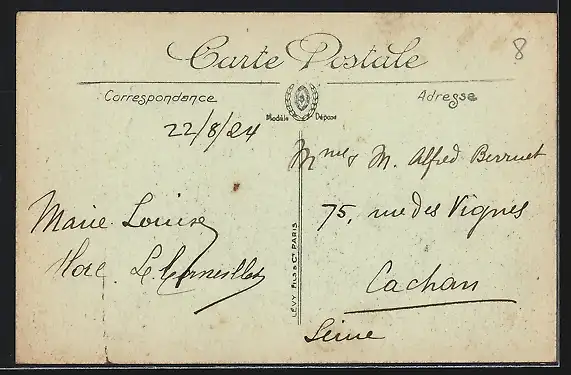 Carte Postale
8
Correspondance
Adresse
Modèle Déposé
22/8/24
Mme & M. Alfred Berruet
75, rue des Vignes
Cachan
Seine
Marie Louise
LÉVY FILS & Cie PARIS